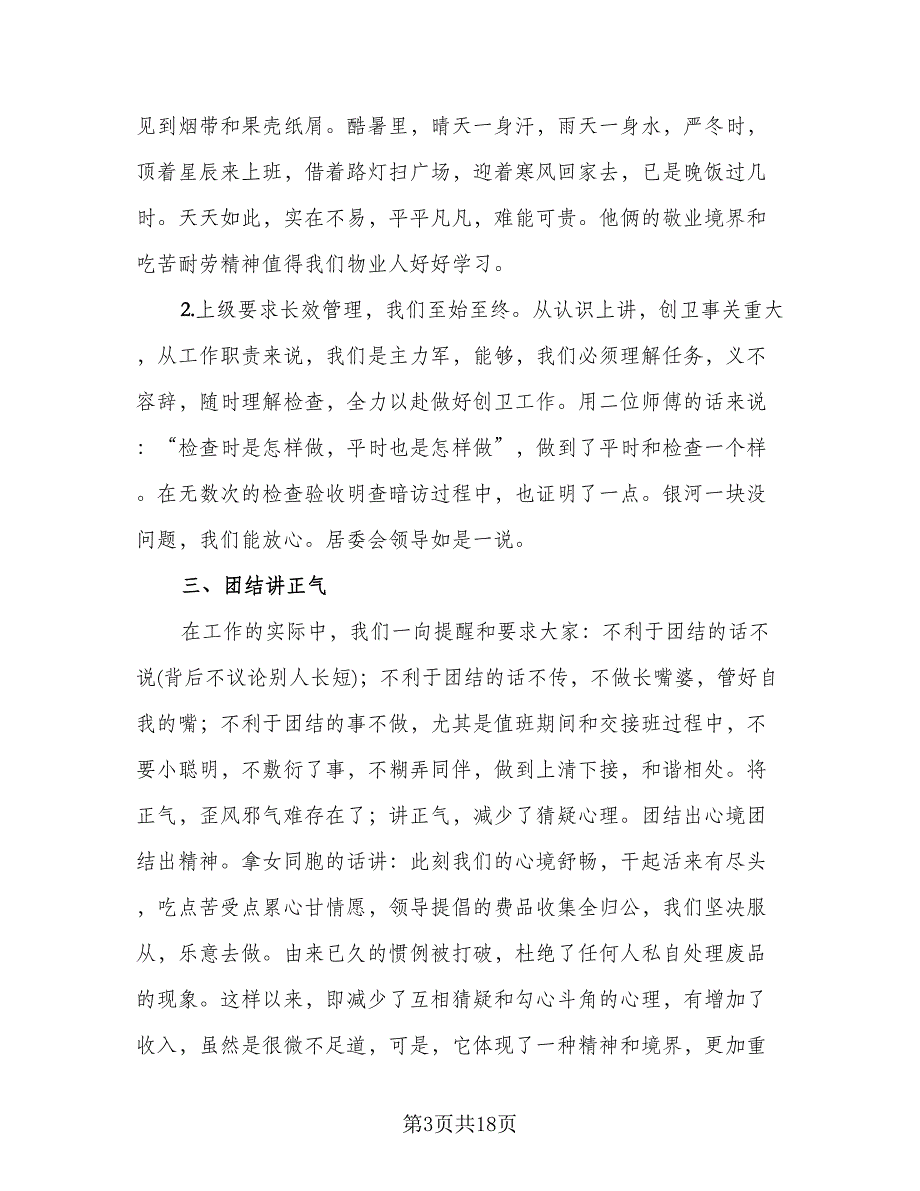 见到烟带和果壳纸屑。酷暑里，晴天一身汗，雨天一身水，严冬时，
顶着星辰来上班，借着路灯扫广场，迎着寒风回家去，已是晚饭过几
时。天天如此，实在不易，平平凡凡，难能可贵。他俩的敬业境界和
吃苦耐劳精神值得我们物业人好好学习。
2.上级要求长效管理，我们至始至终。从认识上讲，创卫事关重大
，从工作职责来说，我们是主力军，能够，我们必须理解任务，义不
容辞，随时理解检查，全力以赴做好创卫工作。用二位师傅的话来说
：“检查时是怎样做，平时也是怎样做”，做到了平时和检查一个样
。在无数次的检查验收明查暗访过程中，也证明了一点。银河一块没
问题，我们能放心。居委会领导如是一说。
三、团结讲正气
在工作的实际中，我们一向提醒和要求大家：不利于团结的话不
说(背后不议论别人长短)；不利于团结的话不传，不做长嘴婆，管好自
我的嘴；不利于团结的事不做，尤其是值班期间和交接班过程中，不
要小聪明，不敷衍了事，不糊弄同伴，做到上清下接，和谐相处。将
正气，歪风邪气难存在了；讲正气，减少了猜疑心理。团结出心境团
结出精神。拿女同胞的话讲：此刻我们的心境舒畅，干起活来有尽头
，吃点苦受点累心甘情愿，领导提倡的费品收集全归公，我们坚决服
从，乐意去做。由来已久的惯例被打破，杜绝了任何人私自处理废品
的现象。这样以来，即减少了互相猜疑和勾心斗角的心理，有增加了
收入，虽然是很微不足道，可是，它体现了一种精神和境界，更加重
第3页共18页